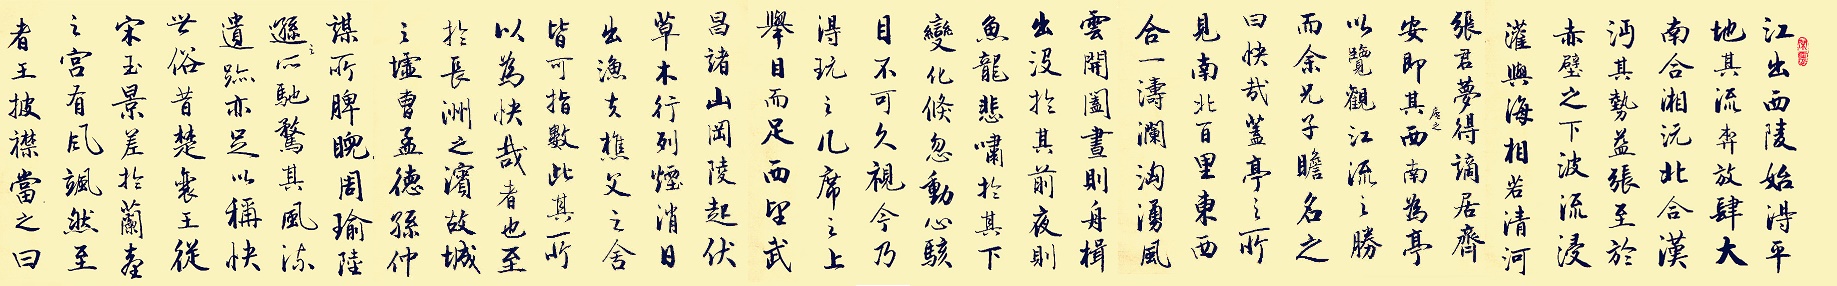 江出西陵始得平
地其流奔放肆大
南合湘沅北合漢
沔其勢益張至於
赤壁之下波流浸
灌與海相若清河
張君夢得謫居齊
安即其居之西南為亭
以覽觀江流之勝
而余兄子瞻名之
曰快哉蓋亭之所
見南北百里東西
合一濤瀾洶湧風
雲開闔晝則舟楫
出沒於其前夜則
魚龍悲嘯於其下
變化倏忽動心駭
目不可久視今乃
得玩之几席之上
舉目而足西望武
昌諸山岡陵起伏
草木行列煙消日
出漁夫樵父之舍
皆可指數此其所
以為快哉者也至
於長洲之濱故城
之墟曹孟德孫仲
謀所睥睨周瑜陸
遜之所馳騖其風流
遺跡亦足以稱快
世俗昔楚襄王從
宋玉景差於蘭臺
之宮有風颯然至
者王披襟當之曰